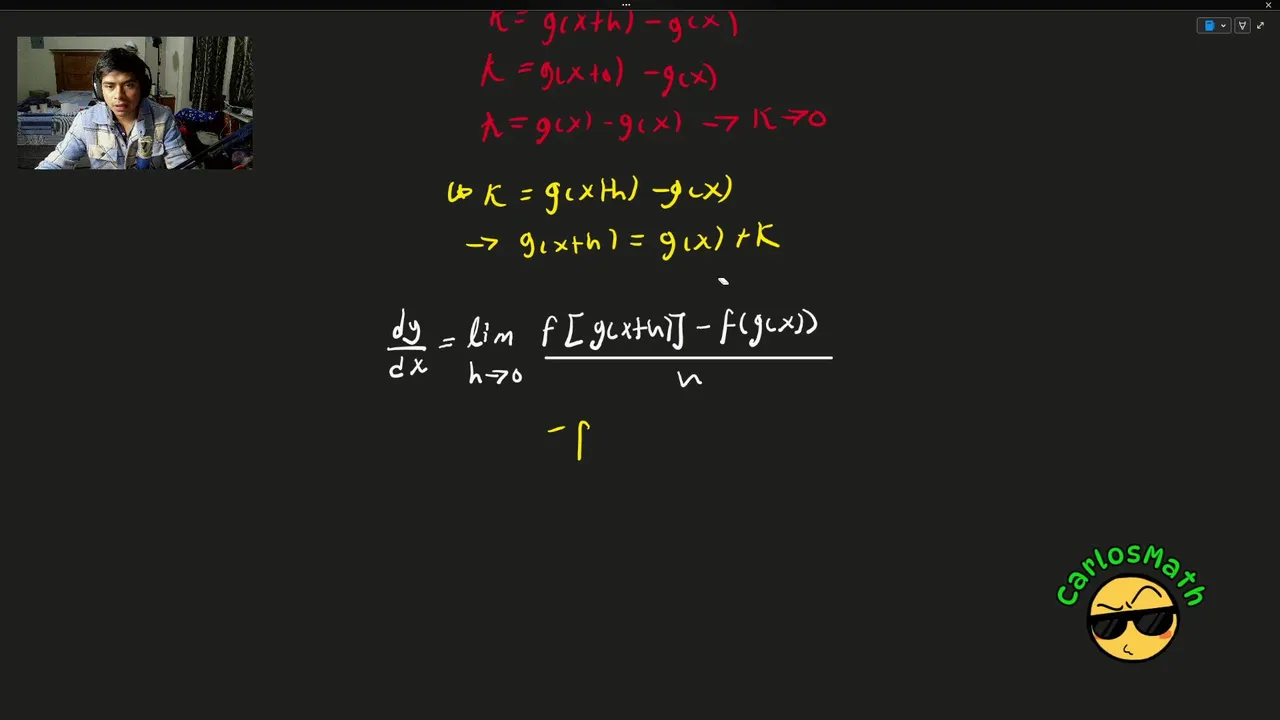 K = g(x+h) - g(x)
K = g(x+0) - g(x)
K = g(x) - g(x) → K→0
↳ K = g(x+h) - g(x)
→ g(x+h) = g(x) + K
dy/dx = lim h→0 f[g(x+h)] - f(g(x)) / h
- f
CarlosMath